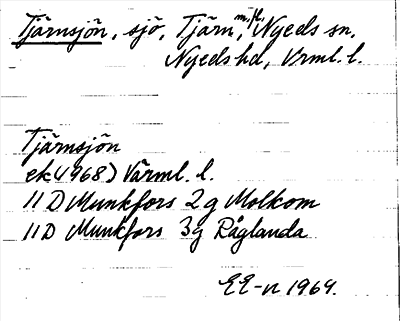 Tjärnsjön, sjö, Tjärn m.fl., Nyeds sn.
Nyeds hd, Vrml. l.
Tjärnsjön
ek(1968) Värml. l.
11 D Munkfors 2g Molkom
11D Munkfors 3g Råglanda
EE-n 1969.